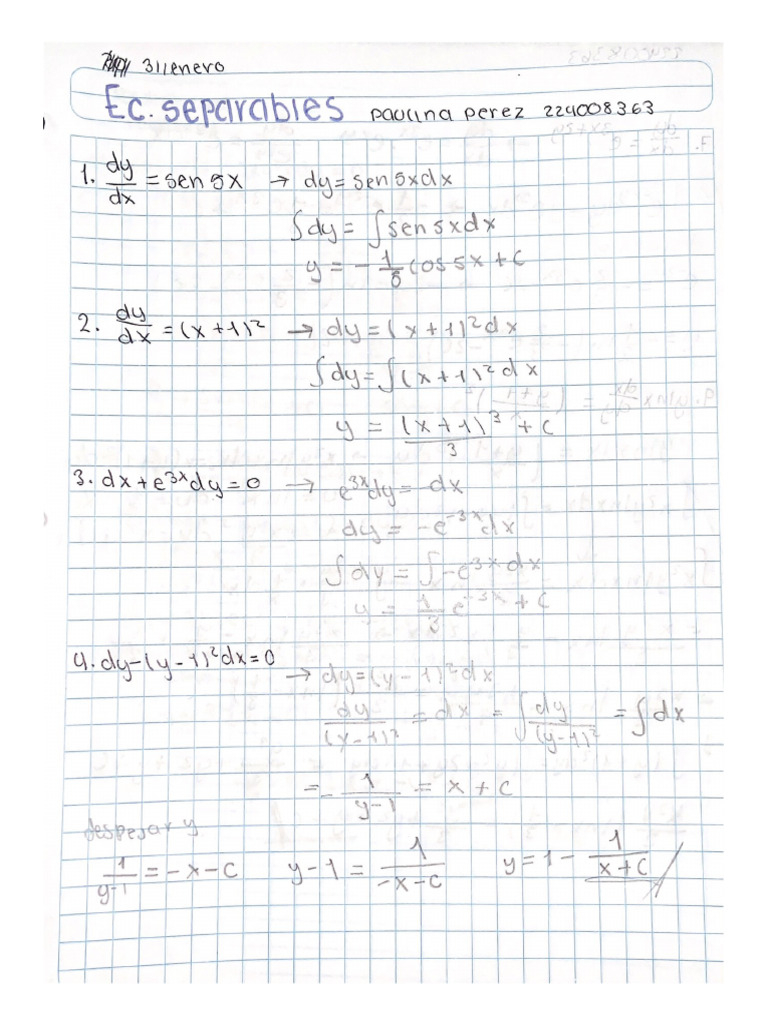 31/enero
Ec. separables paulina perez 224008363
1. dy/dx = sen 5x → dy = sen 5x dx
∫dy = ∫sen 5x dx
y = -1/5 cos 5x + C
2. dy/dx = (x+1)² → dy = (x+1)² dx
∫dy = ∫(x+1)² dx
y = (x+1)³/3 + C
3. dx + e³ˣdy = 0 → e³ˣdy = -dx
dy = -e⁻³ˣdx
∫dy = ∫-e³ˣ dx
y = 1/3 e⁻³ˣ + C
4. dy-(y-1)²dx = 0 → dy = (y-1)²dx
dy/(y-1)² = dx = ∫dy/(y-1)² = ∫dx
= -1/(y-1) = x + C
despejar y
1/(y-1) = -x-C y-1 = 1/(-x-C) y = 1 - 1/(x+C)